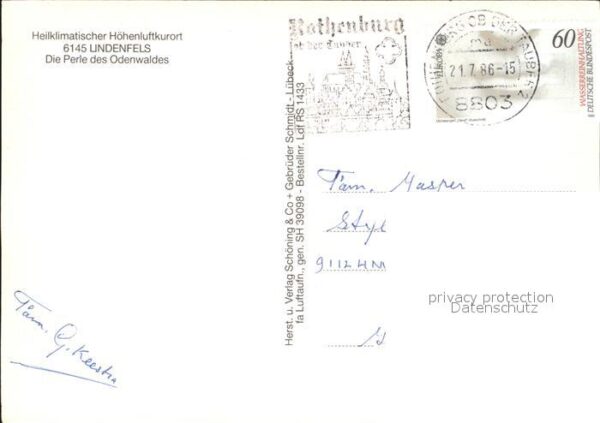 Heilklimatischer Höhenluftkurort
6145 LINDENFELS
Die Perle des Odenwaldes
Rothenburg
ob der Tauber
OB DER TAUBER
21.7.86-15
8803
60
EUROPA
WASSERREINHALTUNG
DEUTSCHE BUNDESPOST
Herst. u. Verlag Schöning & Co + Gebrüder Schmidt - Lübeck
fa Luftaufn., gen. SH 39098 - Bestellnr. Ldf RS 1433
Fam.
9112 HM
privacy protection
Datenschutz
Fam. G. Keestra